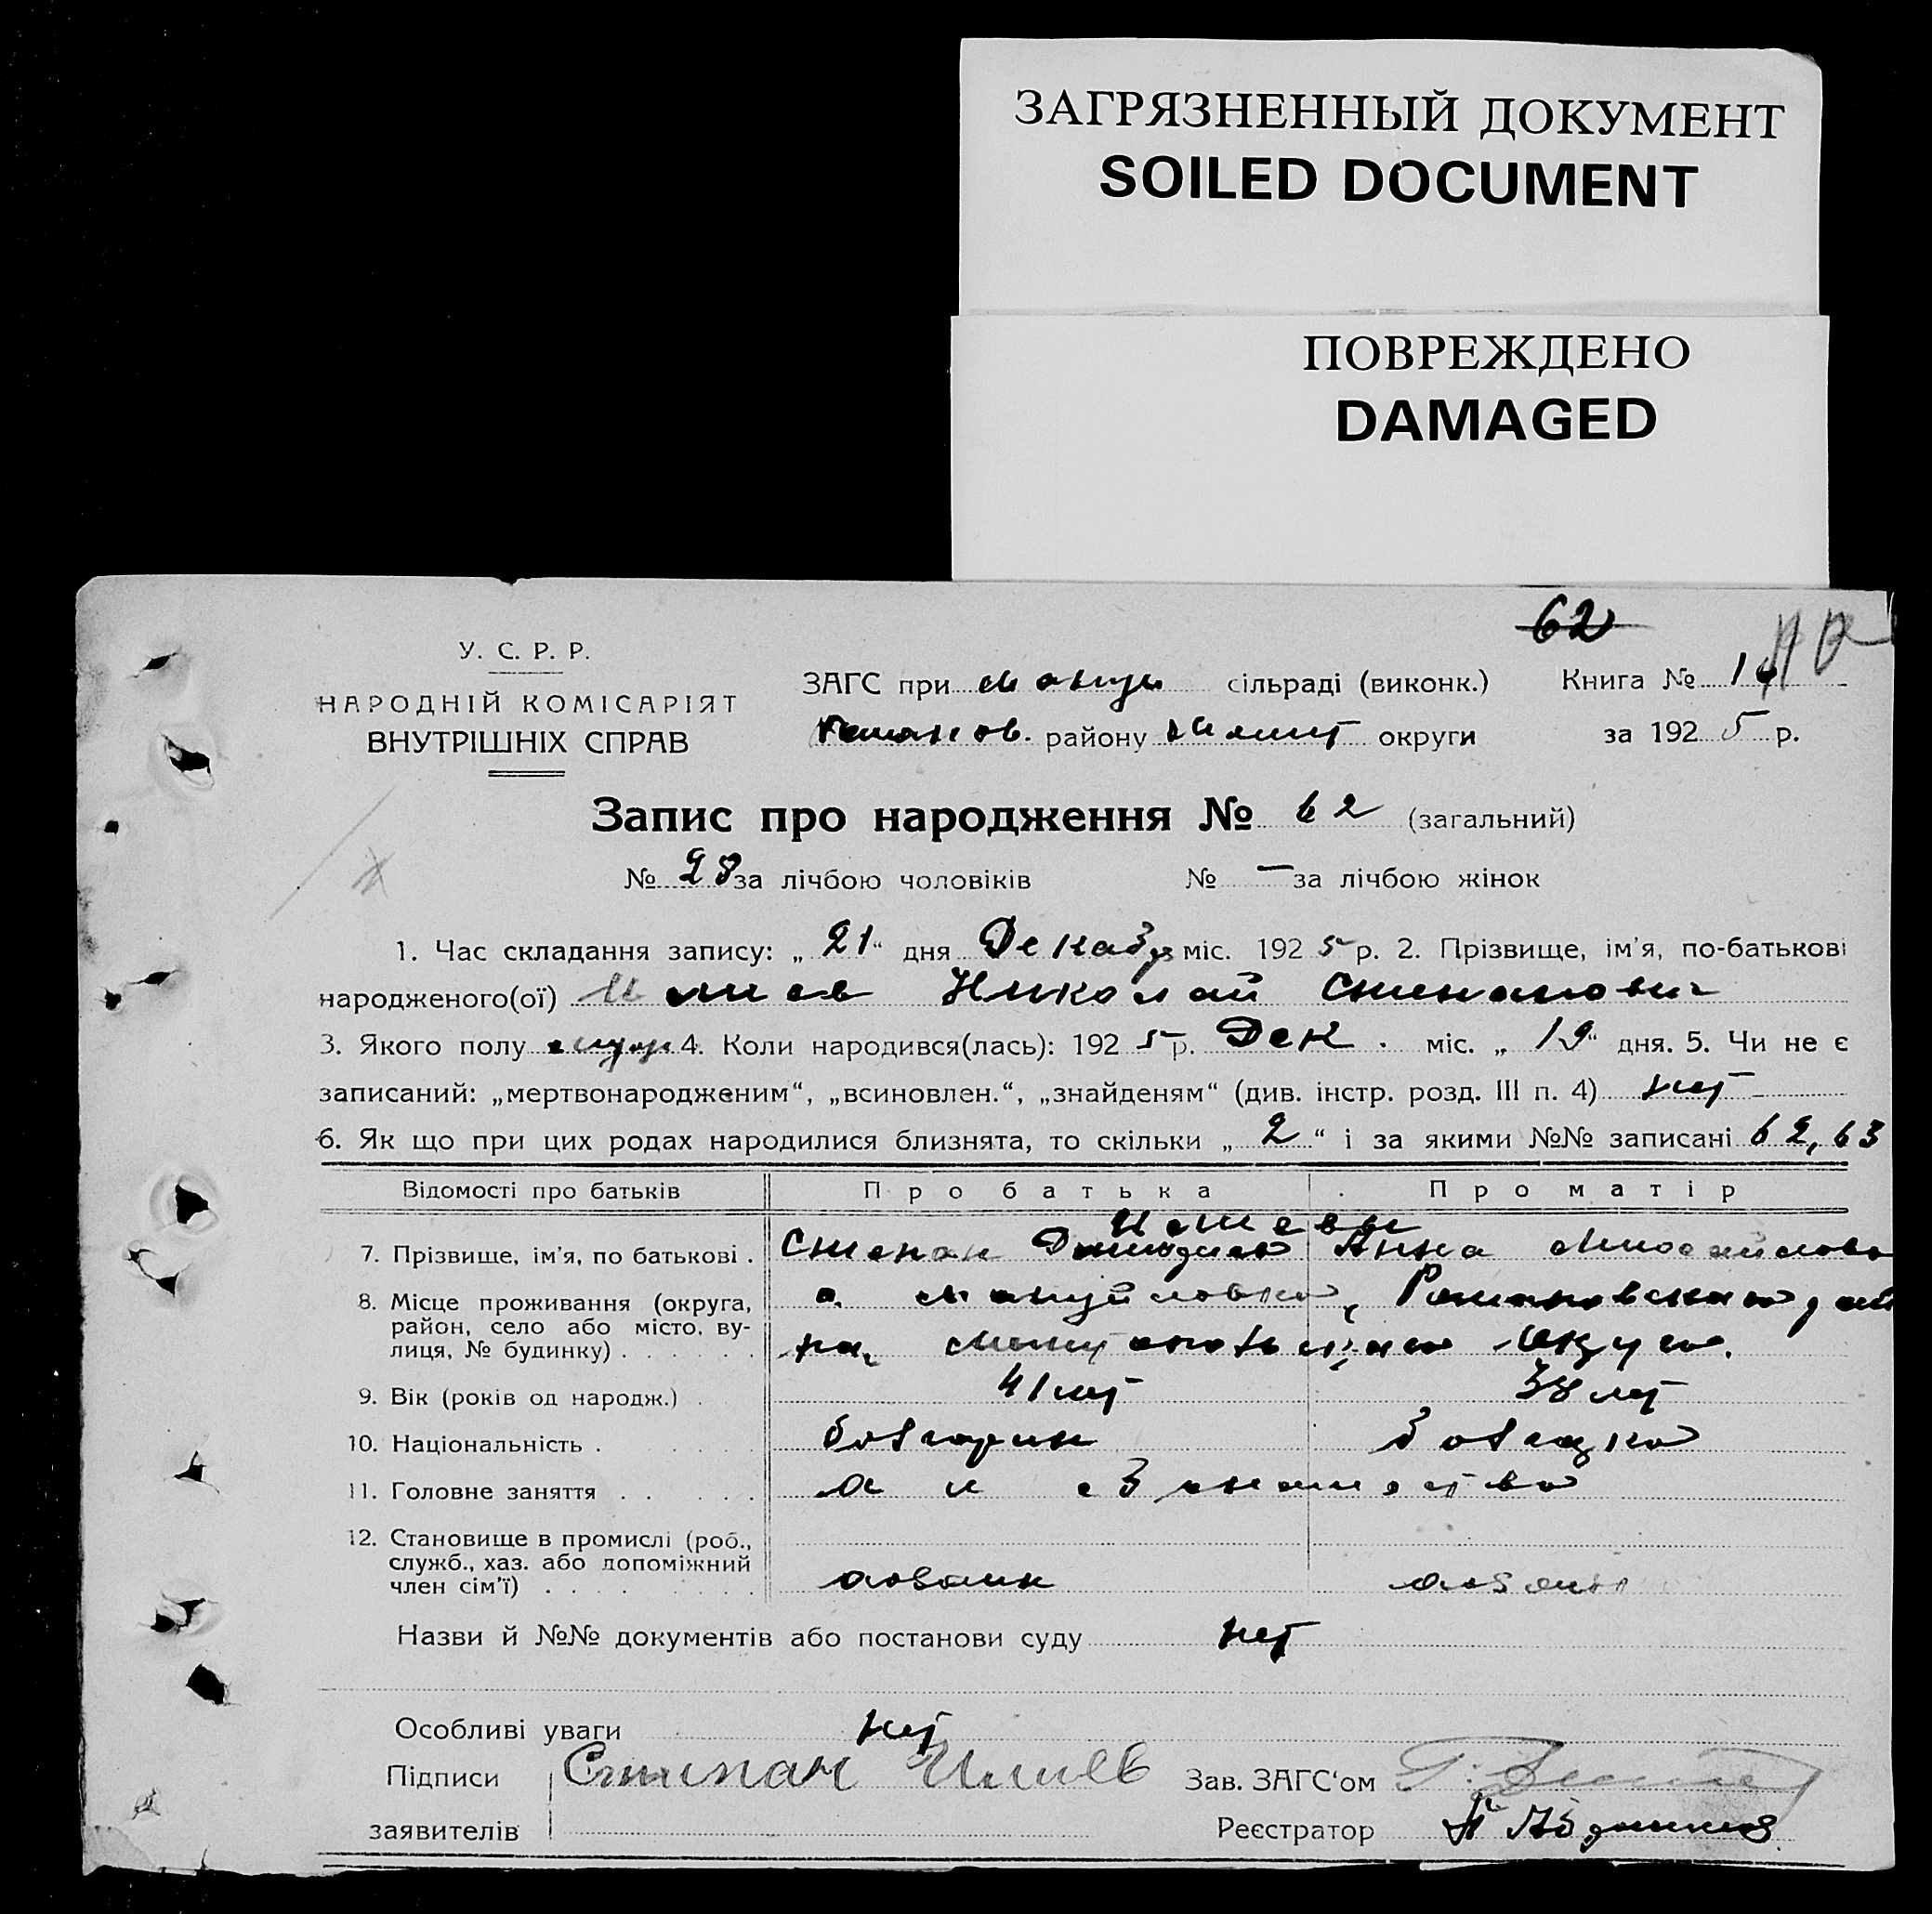 ЗАГРЯЗНЕННЫЙ ДОКУМЕНТ
SOILED DOCUMENT
ПОВРЕЖДЕНО
DAMAGED
62
У. С. Р. Р.
НАРОДНІЙ КОМІСАРІЯТ
ВНУТРІШНІХ СПРАВ
ЗАГС при Мануй сільраді (виконк.) Книга №
Романов. району округи за 1925 р.
Запис про народження № 62 (загальний)
№ 28 за лічбою чоловіків № — за лічбою жінок
1. Час складання запису: „21“ дня Декабр міс. 1925 р. 2. Прізвище, ім'я, по-батькові
народженого(ої) Илиев Николай Степанович
3. Якого полу муж 4. Коли народився(лась): 1925 р. Дек. міс. „19“ дня. 5. Чи не є
записаний: „мертвонародженим“, „всиновлен.“, „знайденям“ (див. інстр. розд. III п. 4) нет
6. Як що при цих родах народилися близнята, то скільки „2“ і за якими №№ записані 62, 63
Відомості про батьків Про батька Про матір
Илиевы
7. Прізвище, ім'я, по батькові . Степан Анна
8. Місце проживання (округа, с. Мануйловка, Романовского рай
район, село або місто, ву-
лиця, № будинку) . . . . . . на, Мелитопольского округа.
9. Вік (років од народж.) . 41 лет 38 лет
10. Національність . болгарин болгарка
11. Головне заняття . . . . .
12. Становище в промислі (роб.,
служб., хаз. або допоміжний
член сім'ї) . . . . . хозяин хозяин
Назви й №№ документів або постанови суду нет
Особливі уваги нет
Підписи Степан Илиев Зав. ЗАГС'ом
заявителів Реєстратор